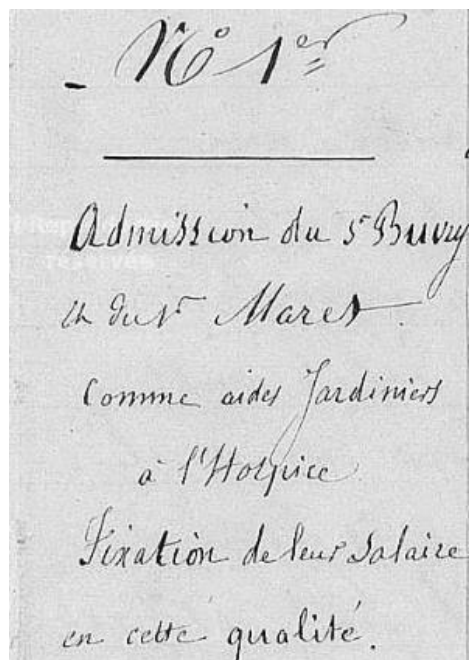 - N° 1er
Admission du Sr Buvry
et du Sr Maret
comme aides Jardiniers
à l'Hospice
Fixation de leur Salaire
en cette qualité.